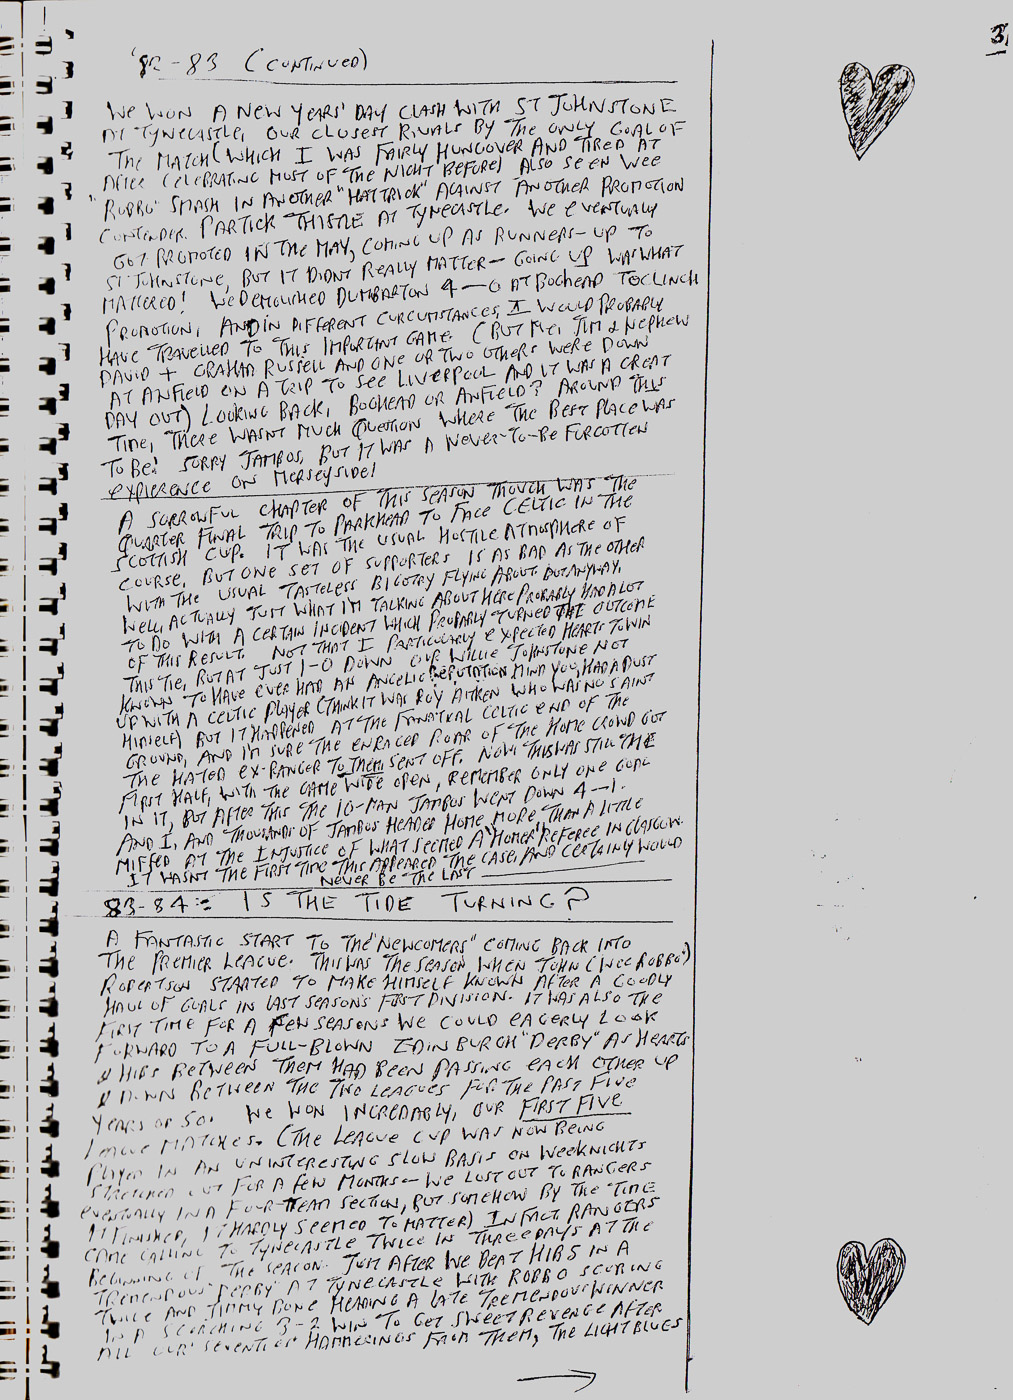 3.
'82-83 (CONTINUED)
WE WON A NEW YEARS' DAY CLASH WITH ST JOHNSTONE
AT TYNECASTLE, OUR CLOSEST RIVALS BY THE ONLY GOAL OF
THE MATCH (WHICH I WAS FAIRLY HUNGOVER AND TIRED AT
AFTER CELEBRATING MOST OF THE NIGHT BEFORE) ALSO SEEN WEE
"ROBBO" SMASH IN ANOTHER "HATTRICK" AGAINST ANOTHER PROMOTION
CONTENDER PARTICK THISTLE AT TYNECASTLE. WE EVENTUALLY
GOT PROMOTED IN THE MAY, COMING UP AS RUNNERS-UP TO
ST JOHNSTONE, BUT IT DIDNT REALLY MATTER - GOING UP WAS WHAT
MATTERED! WE DEMOLISHED DUMBARTON 4-0 AT BOGHEAD TO CLINCH
PROMOTION, AND IN DIFFERENT CURCUMSTANCES, I WOULD PROBABLY
HAVE TRAVELLED TO THIS IMPORTANT GAME. (BUT ME, JIM & NEPHEW
DAVID + GRAHAM RUSSELL AND ONE OR TWO OTHERS WERE DOWN
AT ANFIELD ON A TRIP TO SEE LIVERPOOL AND IT WAS A GREAT
DAY OUT) LOOKING BACK, BOGHEAD OR ANFIELD? AROUND THIS
TIME, THERE WASNT MUCH QUESTION WHERE THE BEST PLACE WAS
TO BE! SORRY JAMBOS, BUT IT WAS A NEVER-TO-BE FORGOTTEN
EXPIERENCE ON MERSEYSIDE!
A SORROWFUL CHAPTER OF THIS SEASON THOUGH WAS THE
QUARTER FINAL TRIP TO PARKHEAD TO FACE CELTIC IN THE
SCOTTISH CUP. IT WAS THE USUAL HOSTILE ATMOSPHERE OF
COURSE, BUT ONE SET OF SUPPORTERS IS AS BAD AS THE OTHER
WITH THE USUAL TASTELESS BIGOTRY FLYING ABOUT. BUT ANYWAY,
WELL, ACTUALLY JUST WHAT I'M TALKING ABOUT HERE PROBABLY HAD A LOT
TO DO WITH A CERTAIN INCIDENT WHICH PROBABLY TURNED THE OUTCOME
OF THIS RESULT. NOT THAT I PARTICULARLY EXPECTED HEARTS TO WIN
THIS TIE, BUT AT JUST 1-0 DOWN OUR WILLIE JOHNSTONE NOT
KNOWN TO HAVE EVER HAD AN ANGELIC REPUTATION MIND YOU, HAD A DUST
UP WITH A CELTIC PLAYER (THINK IT WAS ROY AITKEN WHO WAS NO SAINT
HIMSELF) BUT IT HAPPENED AT THE FANATICAL CELTIC END OF THE
GROUND, AND I'M SURE THE ENRAGED ROAR OF THE HOME CROWD GOT
THE HATED EX-RANGER TO THEM SENT OFF. NOW THIS WAS STILL THE
FIRST HALF, WITH THE GAME WIDE OPEN, REMEMBER ONLY ONE GOAL
IN IT, BUT AFTER THIS THE 10-MAN JAMBOS WENT DOWN 4-1.
AND I, AND THOUSANDS OF JAMBOS HEADED HOME MORE THAN A LITTLE
MIFFED AT THE INJUSTICE OF WHAT SEEMED A "HOMER" REFEREE IN GLASGOW.
IT WASNT THE FIRST TIME THIS APPEARED THE CASE, AND CERTAINLY WOULD
NEVER BE THE LAST
83-84:- IS THE TIDE TURNING?
A FANTASTIC START TO THE "NEWCOMERS" COMING BACK INTO
THE PREMIER LEAGUE. THIS WAS THE SEASON WHEN JOHN (WEE ROBBO)
ROBERTSON STARTED TO MAKE HIMSELF KNOWN AFTER A GOODLY
HAUL OF GOALS IN LAST SEASONS FIRST DIVISION. IT WAS ALSO THE
FIRST TIME FOR A FEW SEASONS WE COULD EAGERLY LOOK
FORWARD TO A FULL-BLOWN EDINBURGH "DERBY" AS HEARTS
& HIBS BETWEEN THEM HAD BEEN PASSING EACH OTHER UP
& DOWN BETWEEN THE TWO LEAGUES FOR THE PAST FIVE
YEARS OR SO. WE WON INCREDABLY, OUR FIRST FIVE
LEAGUE MATCHES. (THE LEAGUE CUP WAS NOW BEING
PLAYED IN AN UNINTERESTING SLOW BASIS ON WEEKNIGHTS
STRETCHED OUT FOR A FEW MONTHS - WE LOST OUT TO RANGERS
EVENTUALLY IN A FOUR-TEAM SECTION, BUT SOMEHOW BY THE TIME
IT FINISHED, IT HARDLY SEEMED TO MATTER) IN FACT RANGERS
CAME CALLING TO TYNECASTLE TWICE IN THREE DAYS AT THE
BEGINNING OF THE SEASON. JUST AFTER WE BEAT HIBS IN A
TREMENDOUS "DERBY" AT TYNECASTLE WITH ROBBO SCORING
TWICE AND JIMMY BONE HEADING A LATE TREMENDOUS WINNER
IN A SCORCHING 3-2 WIN TO GET SWEET REVENGE AFTER
ALL OUR SEVENTIES HAMMERINGS FROM THEM, THE LIGHT BLUES